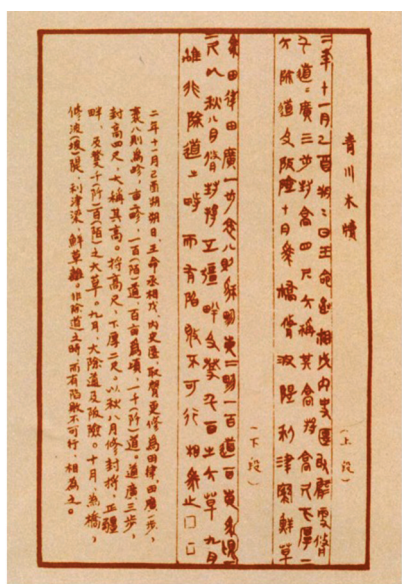 青川木牘
（上段）
二年十一月己酉朔朔日王命丞相戊内史匽取臂更脩
千道=廣三步封高四尺大稱其高捋高尺下厚二
大除道及阪險十月爲橋脩波隄利津關鮮草
（下段）
爲田律田廣一步袤八則爲畛畝二畛一百道百畝爲頃一
尺以秋八月脩封捋正疆畔及癹千百之大草九月
離非除道之時而有陷敗不可行相爲之□□
二年十一月己酉朔朔日，王命丞相戊、内史匽，取臂更修爲田律：田廣一步，
袤八則爲畛。畝二畛，一百（陌）道。百畝爲頃，一千（阡）道。道廣三步，
封高四尺，大稱其高。捋高尺，下厚二尺。以秋八月修封捋，正疆
畔，及癹千（阡）百（陌）之大草。九月，大除道及阪險。十月，爲橋，
修波（陂）隄，利津梁，鮮草離。非除道之時，而有陷敗不可行，相爲之。